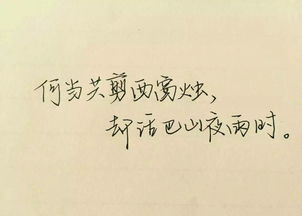 何当共剪西窗烛，
却话巴山夜雨时。